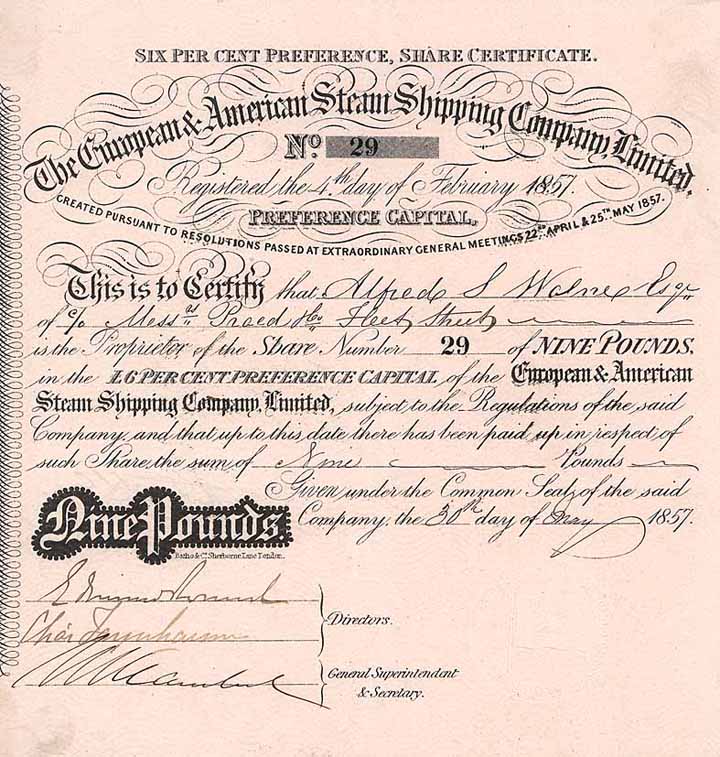 SIX PER CENT PREFERENCE, SHARE CERTIFICATE.
The European & American Steam Shipping Company, Limited.
No. 29
Registered the 4th day of February 1857.
PREFERENCE CAPITAL.
CREATED PURSUANT TO RESOLUTIONS PASSED AT EXTRAORDINARY GENERAL MEETINGS 22nd APRIL & 25TH MAY 1857.
This is to Certify that Alfred S Esqre
of c/o Messrs Praed & Co Fleet Street
is the Proprietor of the Share Number 29 of NINE POUNDS,
in the £6 PER CENT PREFERENCE CAPITAL of the European & American
Steam Shipping Company, Limited, subject to the Regulations of the said
Company, and that up to this date there has been paid up in respect of
such Share, the sum of Nine Pounds
Given under the Common Seal, of the said
Company, the 30th day of May 1857.
Nine Pounds.
Batho & Co. Sherborne Lane London.
Directors.
General Superintendent
& Secretary.